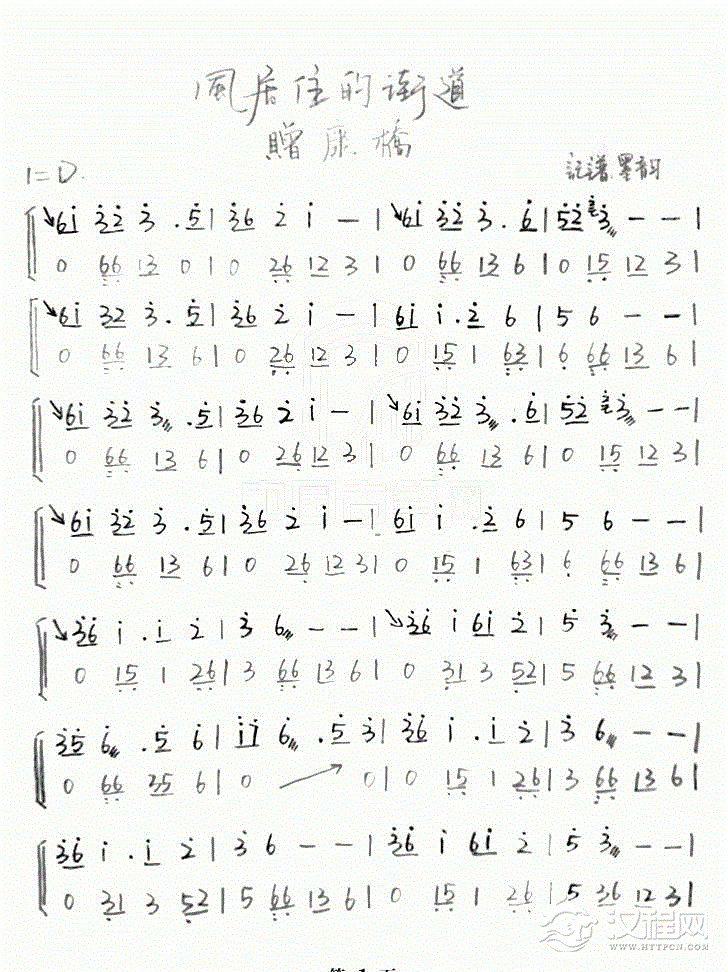 風居住的街道
贈康橋
1=D.
記譜墨韵
61̇ 3̇2̇ 3̇ . 5̇ | 3̇6 2̇ 1̇ — | 61̇ 3̇2̇ 3̇ . 6̇ | 5̇2̇ 3̇ — — |
0 66 13 0 | 0 26 12 3 | 0 66 13 6 | 0 15 12 3 |
61̇ 32 3 . 5̇ | 3̇6 2̇ 1̇ — | 61̇ 1̇ . 2̇ 6 | 5 6 — — |
0 66 13 6 | 0 26 12 3 | 0 15 1 63 | 6 66 13 6 |
61̇ 3̇2̇ 3̇ . 5̇ | 3̇6 2̇ 1̇ — | 61̇ 3̇2̇ 3̇ . 6̇ | 5̇2̇ 3̇ — — |
0 66 13 6 | 0 26 12 3 | 0 66 13 6 | 0 15 12 3 |
61̇ 3̇2̇ 3̇ . 5̇ | 3̇6 2̇ 1̇ — | 61̇ 1̇ . 2̇ 6 | 5 6 — — |
0 66 13 6 | 0 26 12 3 | 0 15 1 63 | 6 66 13 6 |
3̇6̇ 1̇ . 1̇ 2̇ | 3̇ 6 — — | 3̇6̇ 1̇ 61̇ 2̇ | 5 3̇ — — |
0 15 1 26 | 3 66 13 6 | 0 31 3 52 | 5 66 12 3 |
3̇5̇ 6̇ . 5̇ 6̇ | 1̇1̇ 6̇ . 5̇ 3̇ | 3̇6̇ 1̇ . 1̇ 2̇ | 3̇ 6 — — |
0 66 35 6 | 0 0 | 0 15 1 26 | 3 66 13 6 |
3̇6̇ 1̇ . 1̇ 2̇ | 3̇ 6 — — | 3̇6̇ 1̇ 61̇ 2̇ | 5 3̇ — — |
0 31 3 52 | 5 66 13 6 | 0 15 1 26 | 5 36 12 3 |
汉程网
HTTPCN.COM